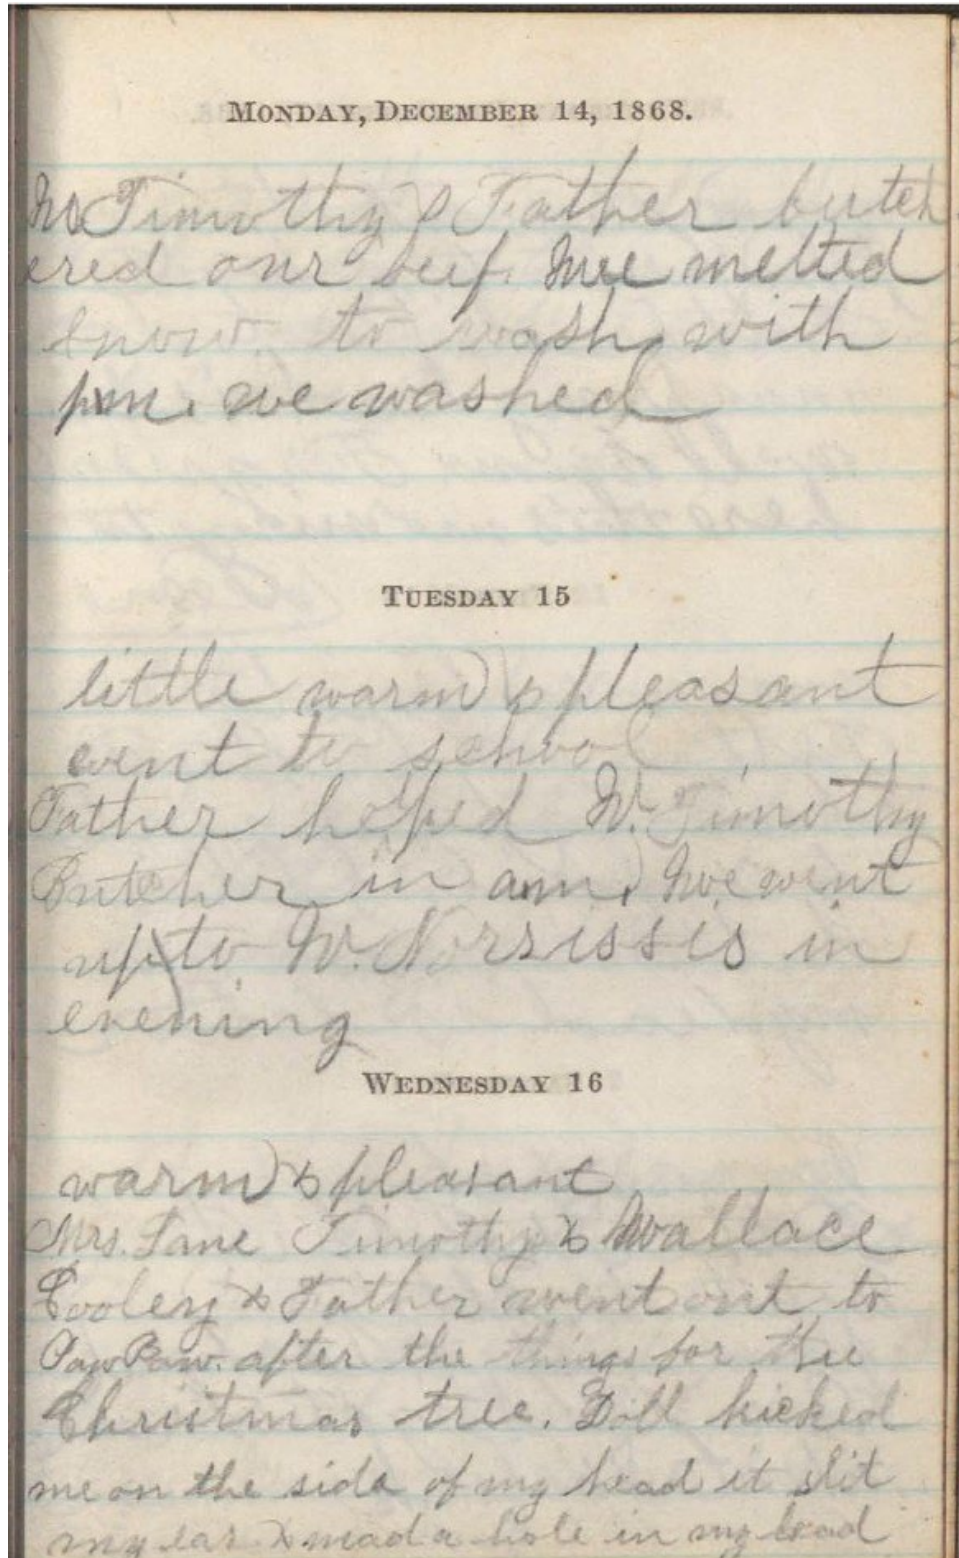 MONDAY, DECEMBER 14, 1868.
W Timothy & Father butch
ered our beef. We melted
snow to wash with
pm. we washed
TUESDAY 15
little warm & pleasant
went to school
Father helped W. Timothy
Butcher in am. We went
up to W. Norrissis in
evening
WEDNESDAY 16
warm & pleasant
Mrs. Lane Timothy & Wallace
Cooley & Father went out to
Paw Paw. after the things for the
Christmas tree. Doll kicked
me on the side of my head it slit
my ear & mad a hole in my head